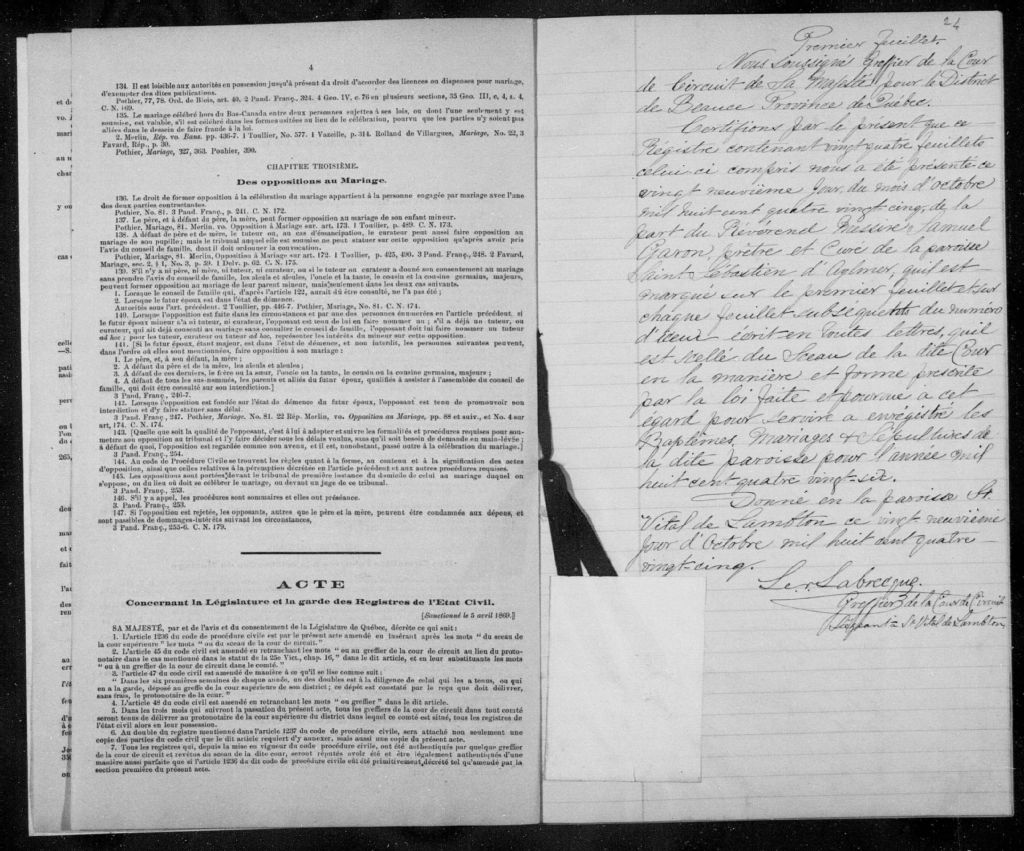 4
134. Il est loisible aux autorités en possession jusqu'à présent du droit d'accorder des licences ou dispenses pour mariage,
d'exempter des dites publications.
Pothier, 77, 78. Ord. de Blois, art. 40, 2 Pand. Franç., 324. 4 Geo. IV, c. 76 en plusieurs sections, 35 Geo. III, c, 4, s. 4,
C. N. 169.
135. Le mariage célébré hors du Bas-Canada entre deux personnes sujettes à ses lois, ou dont l'une seulement y est
soumise, est valable, s'il est célébré dans les formes usitées au lieu de la célébration, pourvu que les parties n'y soient pas
allées dans le dessein de faire fraude à la loi.
2. Merlin, Rép. vo. Bans. pp. 436-7. 1 Toullier, No. 577. 1 Vazeille, p. 314. Rolland de Villargues, Mariage, No. 22, 3
Favard, Rép., p. 30.
Pothier, Mariage, 327, 363. Pothier, 390.
CHAPITRE TROISIÈME.
Des oppositions au Mariage.
136. Le droit de former opposition à la célébration du mariage appartient à la personne engagée par mariage avec l'une
des deux parties contractantes.
Pothier, No. 81. 3 Pand. Franç., p. 241. C. N. 172.
137. Le père, et à défaut du père, la mère, peut former opposition au mariage de son enfant mineur.
Pothier, Mariage, 81. Merlin, vo. Opposition à Mariage sur. art. 173. 1 Toullier, p. 489. C. N. 173.
138. A défaut de père et de mère, le tuteur ou, au cas d'émancipation, le curateur peut aussi faire opposition au
mariage de son pupille; mais le tribunal auquel elle est soumise ne peut statuer sur cette opposition qu'après avoir pris
l'avis du conseil de famille, dont il doit ordonner la convocation.
Pothier, Mariage, 81. Merlin, Opposition à Mariage sur art. 172. 1 Toullier, p. 425, 490. 3 Pand. Franç., 248. 2 Favard,
Mariage, sec. 2, § 1, No. 3, p. 59. 1 Delv. p. 62. C. N. 175.
139. S'il n'y a ni père, ni mère, ni tuteur, ni curateur, ou si le tuteur ou curateur a donné son consentement au mariage
sans prendre l'avis du conseil de famille, les aïeuls et aïeules, l'oncle et la tante, le cousin et la cousine germains, majeurs,
peuvent former opposition au mariage de leur parent mineur, mais seulement dans les deux cas suivants.
1. Lorsque le conseil de famille qui, d'après l'article 122, aurait dû être consulté, ne l'a pas été;
2. Lorsque le futur époux est dans l'état de démence.
Autorités sous l'art. précédent. 2 Toullier, pp. 446-7. Pothier, Mariage, No. 81. C. N. 174.
140. Lorsque l'opposition est faite dans les circonstances et par une des personnes énumérées en l'article précédent, si
le futur époux mineur n'a ni tuteur, ni curateur, l'opposant est tenu de lui en faire nommer un; s'il a déjà un tuteur, ou
curateur, qui ait déjà consenti au mariage sans consulter le conseil de famille, l'opposant doit lui faire nommer un tuteur
ad hoc; pour les tuteur, curateur ou tuteur ad hoc, représenter les intérêts du mineur sur cette opposition.
141. [Si le futur époux, étant majeur, est dans l'état de démence, et non interdit, les personnes suivantes peuvent,
dans l'ordre où elles sont mentionnées, faire opposition à son mariage:
1. Le père, et, à son défaut, la mère;
2. A défaut du père et de la mère, les aïeuls et aïeules;
3. A défaut de ces derniers, le frère ou la sœur, l'oncle ou la tante, le cousin ou la cousine germains, majeurs;
4. A défaut de tous les sus-nommés, les parents et alliés du futur époux, qualifiés à assister à l'assemblée du conseil de
famille, qui doit être consulté sur son interdiction.]
3 Pand. Franç., 246-7.
142. Lorsque l'opposition est fondée sur l'état de démence du futur époux, l'opposant est tenu de promouvoir son
interdiction et d'y faire statuer sans délai.
3 Pand. Franç., 247. Pothier, Mariage, No. 81. 22 Rép. Merlin, vo. Opposition au Mariage, pp. 88 et suiv., et No. 4 sur
art, 174. C. N. 174.
143. [Quelle que soit la qualité de l'opposant, c'est à lui à adopter et suivre les formalités et procédures requises pour sou-
mettre son opposition au tribunal et l'y faire décider sous les délais voulus, sans qu'il soit besoin de demande en main-lévée;
à défaut de quoi, l'opposition est regardée comme non avenue, et il est, nonobstant, passé outre à la célébration du mariage.]
3 Pand. Franç., 254.
144. Au code de Procédure Civile se trouvent les règles quant à la forme, au contenu et à la signification des actes
d'opposition, ainsi que celles relatives à la péremption décrétée en l'article précédent et aux autres procédures requises.
145. Les oppositions sont portées devant le tribunal de première instance du domicile de celui au mariage duquel on
s'oppose, ou du lieu où doit se célébrer le mariage, ou devant un juge de ce tribunal.
3 Pand. Franç., 253.
146. S'il y a appel, les procédures sont sommaires et elles ont préséance.
3 Pand. Franç., 253.
147. Si l'opposition est rejetée, les opposants, autres que le père et la mère, peuvent être condamnés aux dépens, et
sont passibles de dommages-intérêts suivant les circonstances,
3 Pand. Franç., 255-6. C. N. 179.
ACTE
Concernant la Législature et la garde des Registres de l'Etat Civil.
[Sanctionné le 5 avril 1869.]
SA MAJESTÉ, par et de l'avis et du consentement de la Législature de Québec, décrète ce qui suit:
1. L'article 1236 du code de procédure civile est par le présent acte amendé en insérant après les mots "du sceau de
la cour supérieure" les mots "ou du sceau de la cour de circuit."
2. L'article 45 du code civil est amendé en retranchant les mots "ou au greffier de la cour de circuit au lieu du proto-
notaire dans le cas mentionné dans le statut de la 25e Vict., chap. 16," dans le dit article, et en leur substituants les mots
"ou à un greffier de la cour de circuit dans le comté."
3. l'article 47 du code civil est amendé de manière à ce qu'il se lise comme suit:
"Dans les six premières semaines de chaque année, un des doubles est à la diligence de celui qui les a tenus, ou qui
en a la garde, déposé au greffe de la cour supérieure de son district; ce dépôt est constaté par le reçu que doit délivrer,
sans frais, le protonotaire de la cour."
4. L'article 48 du code civil est amendé en retranchant les mots "ou greffier" dans le dit article.
5. Dans les trois mois qui suivront la passation du présent acte, tous les greffiers de la cour de circuit dans tout comté
seront tenus de délivrer au protonotaire de la cour supérieure du district dans lequel ce comté est situé, tous les registres de
l'état civil alors en leur possession.
6. Au double du registre mentionné dans l'article 1237 du code de procédure civile, sera attaché non seulement une
copie des parties du code civil que le dit article requiert d'y annexer, mais aussi une copie du présent acte.
7. Tous les registres qui, depuis la mise en vigueur du code procédure civile, ont été authentiqués par quelque greffier
de la cour de circuit et revêtus du sceau de la dite cour, seront réputés avoir été et être légalement authentiqués d'une
manière aussi parfaite que si l'article 1236 du dit code de procédure civile eût été primitivement décrété tel qu'amendé par la
section première du présent acte.
24
Premier feuillet.
Nous soussigné Greffier de la Cour
de Circuit de Sa Majesté pour le District
de Beauce Province de Québec.
Certifions par le présent que ce
Régistre contenant vingt quatre feuillets
celui ci compris nous a été présenté ce
vingt neuvième jour du mois d'octobre
mil huit cent quatre vingt cinq, de la
part du Révérend Messire Samuel
Garon, prêtre et Curé de la paroisse
Saint Sébastien d'Aylmer, qu'il est
marqué sur le premier feuillet et sur
chaque feuillet subséquents du numéro
d'iceux écrit en toutes lettres, qu'il
est scellé du Sceau de la dite Cour
en la manière et forme présenté
par la loi faite et pourvue à cet
égard pour servire à enrégistré les
Baptêmes, Mariages & Sépultures de
la dite paroisse pour l'année mil
huit cent quatre vingt-six.
Donné en la paroisse St
Vital de Lambton ce vingt neuvième
jour d'Octobre mil huit cent quatre-
vingt-cinq.
Labrecque.
Greffier de la Cour de Circuit
St Vital de Lambton